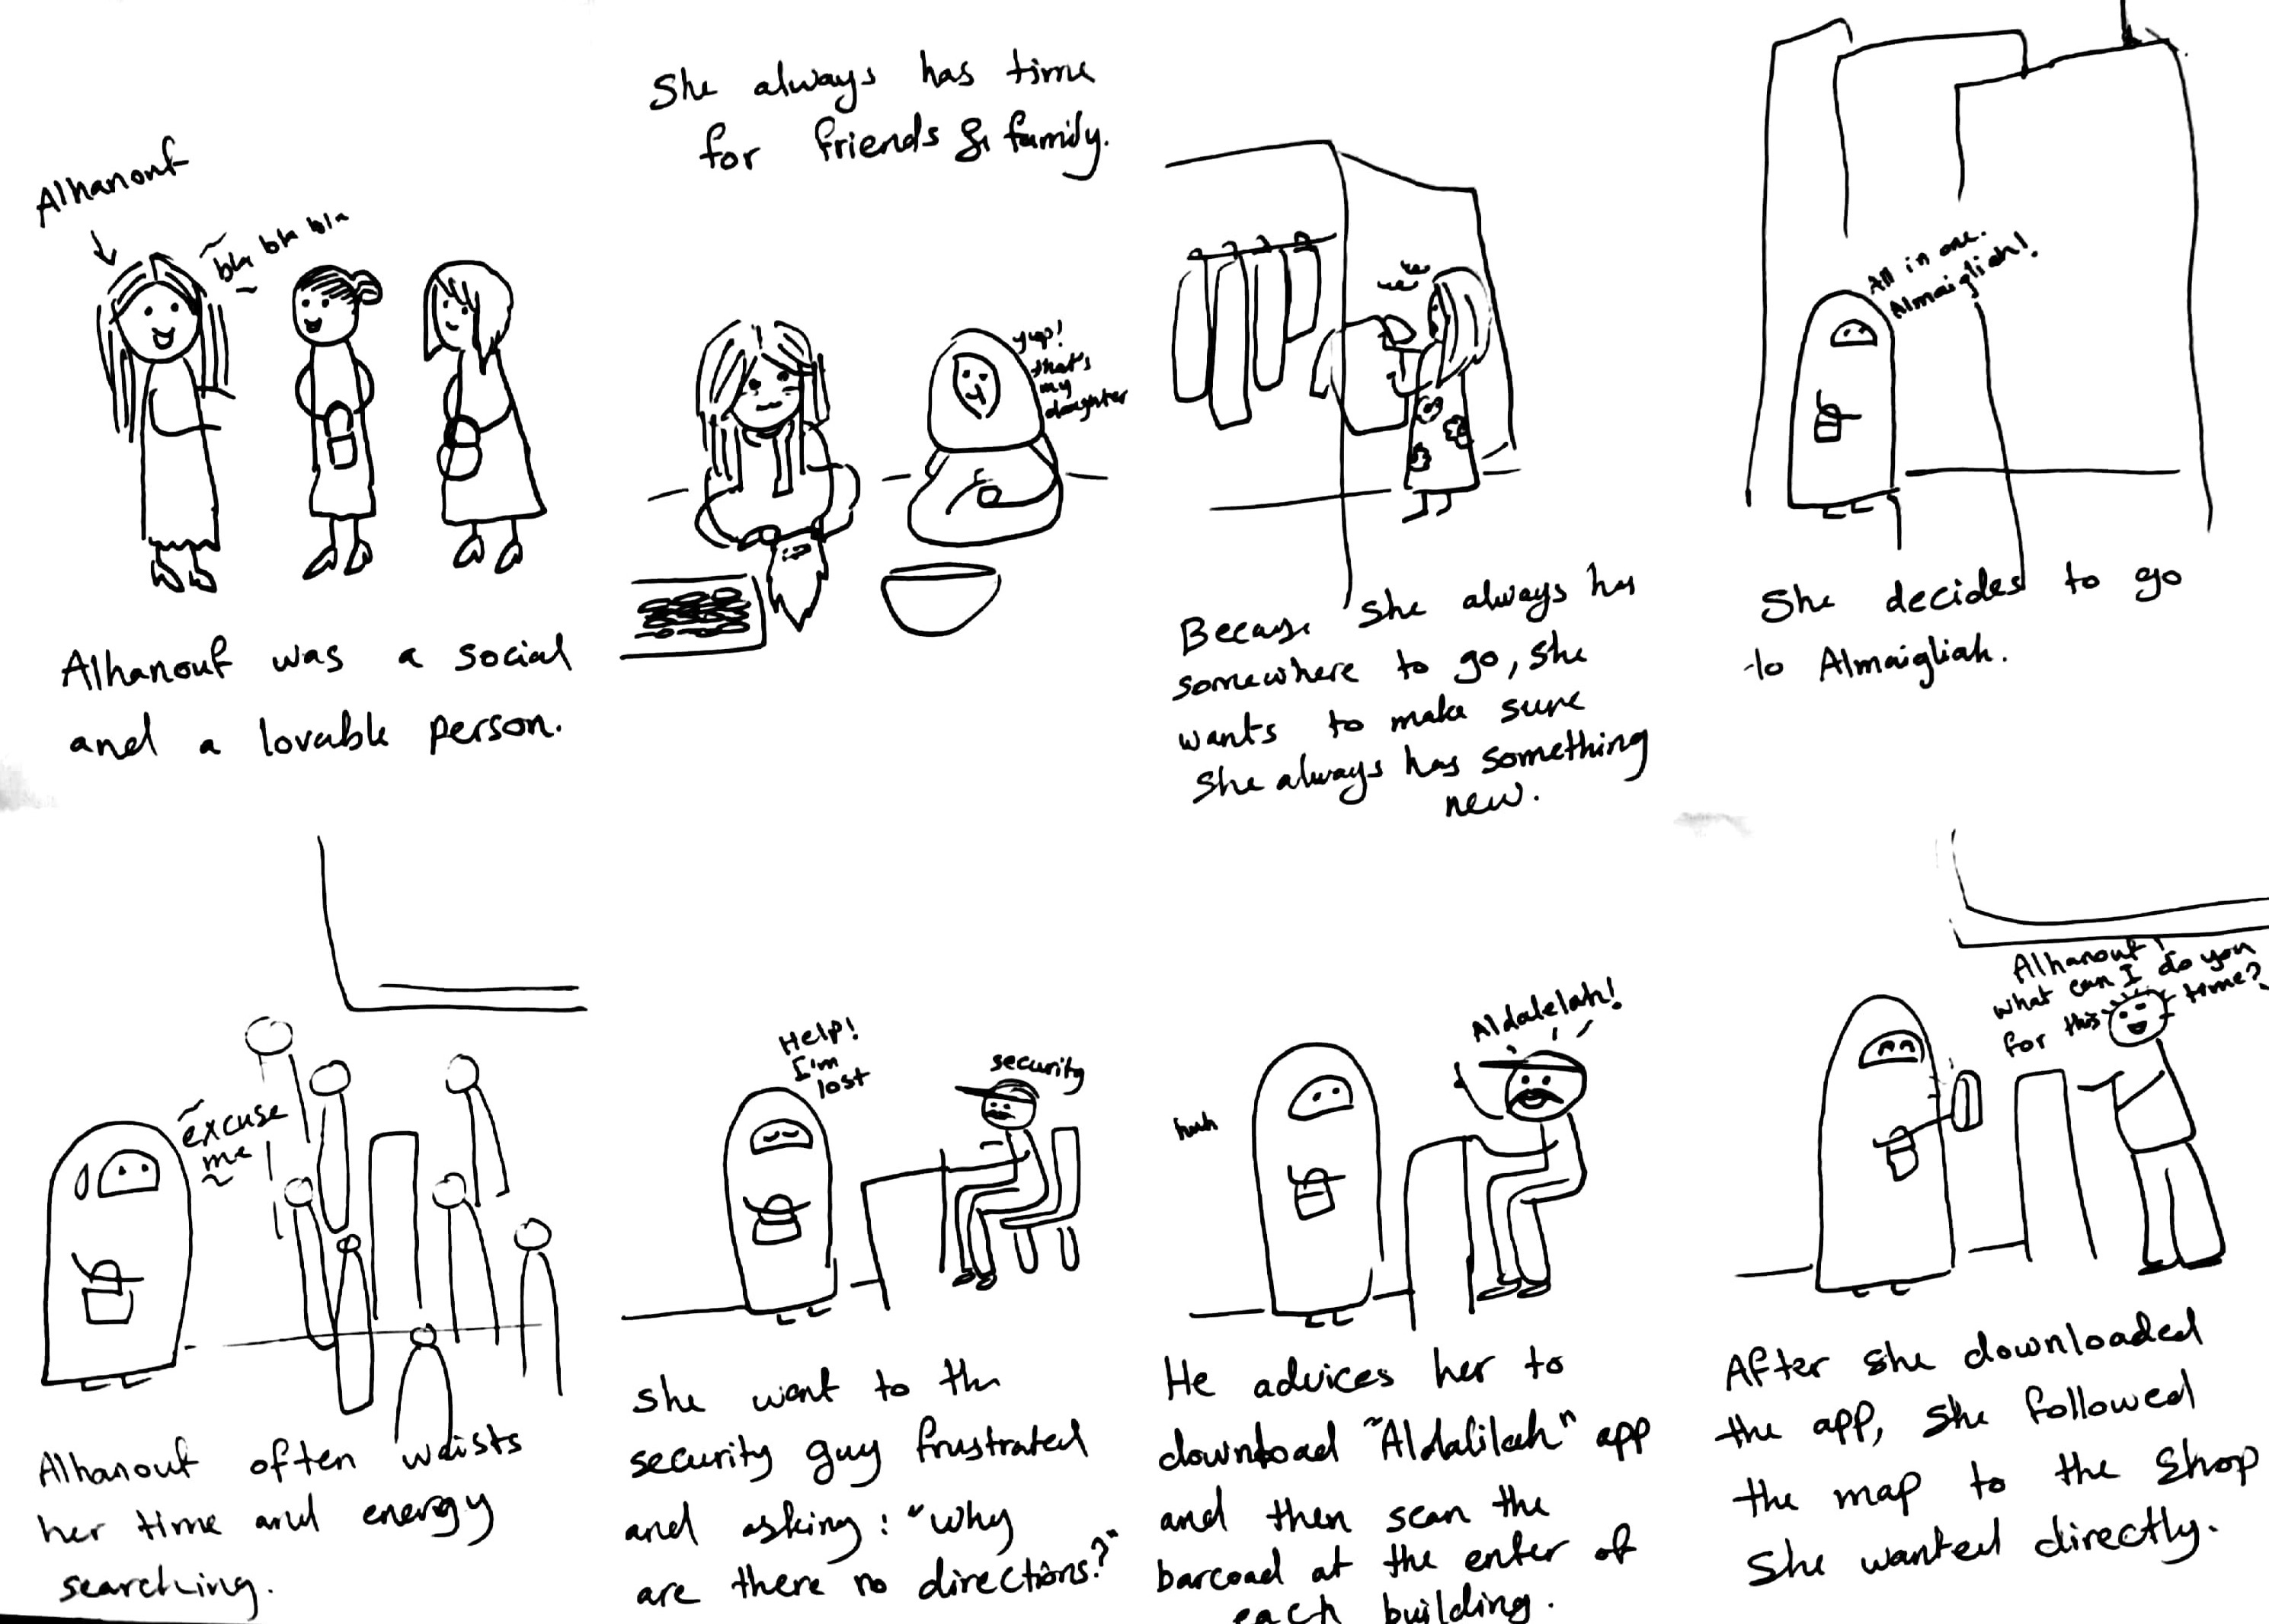 Alhanouf
bla bla bla
Alhanouf was a social
and a lovable person.
She always has time
for friends & family.
yup!
that's
my
daughter
Because she always has
somewhere to go, she
wants to make sure
she always has something
new.
All in one.
Almaigliah!
She decides to go
to Almaigliah.
excuse
me
Alhanouf often waists
her time and energy
searching.
Help!
I'm
lost
security
she went to the
security guy frustrated
and asking: "why
are there no directions?"
huh
Aldalelah!
He advices her to
download "Aldalilah" app
and then scan the
barcoad at the enter of
each building.
Alhanouf!
what can I do you
for this time?
After she downloaded
the app, she followed
the map to the shop
she wanted directly.